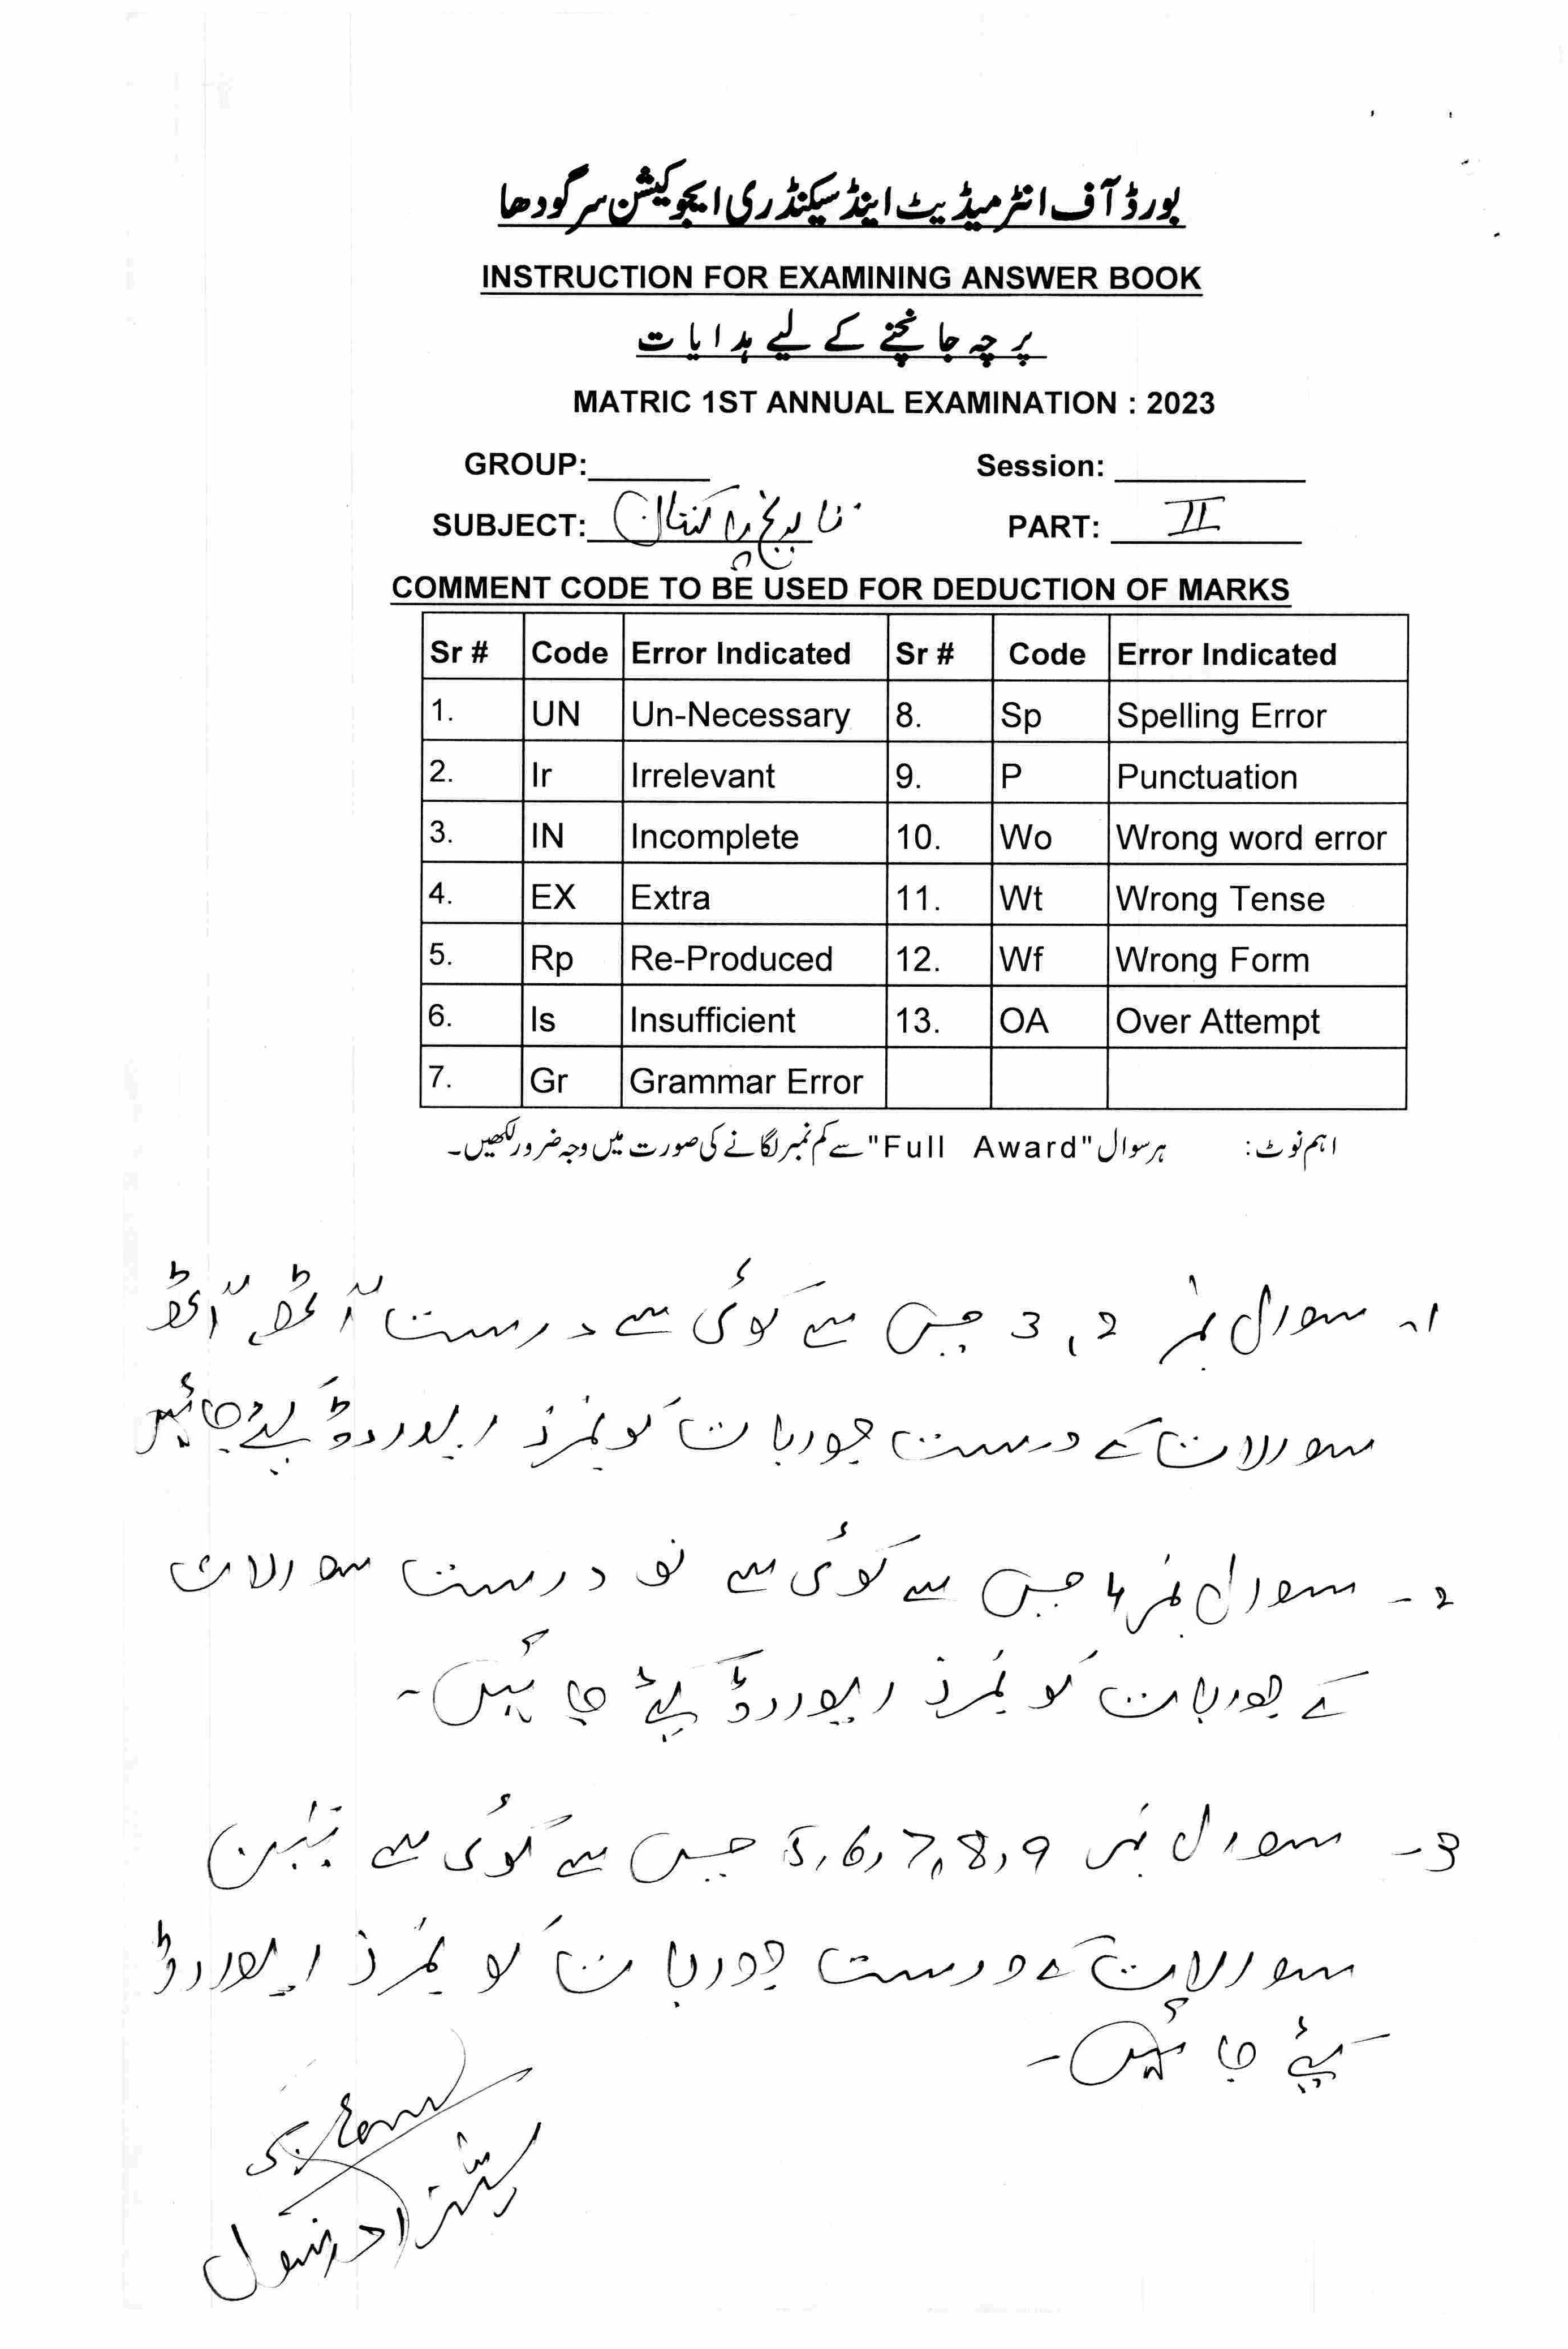 بورڈ آف انٹرمیڈیٹ اینڈ سیکنڈری ایجوکیشن سرگودھا
INSTRUCTION FOR EXAMINING ANSWER BOOK
پرچہ جانچنے کے لیے ہدایات
MATRIC 1ST ANNUAL EXAMINATION : 2023
GROUP: Session:
SUBJECT: تاریخ پاکستان PART: II
COMMENT CODE TO BE USED FOR DEDUCTION OF MARKS
Sr # Code Error Indicated Sr # Code Error Indicated
1. UN Un-Necessary 8. Sp Spelling Error
2. Ir Irrelevant 9. P Punctuation
3. IN Incomplete 10. Wo Wrong word error
4. EX Extra 11. Wt Wrong Tense
5. Rp Re-Produced 12. Wf Wrong Form
6. Is Insufficient 13. OA Over Attempt
7. Gr Grammar Error
اہم نوٹ: ہر سوال "Full Award" سے کم نمبر لگانے کی صورت میں وجہ ضرور لکھیں۔
1۔ سوال نمبر 2، 3 جس سے کوئی سے درست "آٹھ، آٹھ"
سوالات کے درست جوابات کو نمبرز ایوارڈ کیے جائیں
2۔ سوال نمبر 4 جس سے کوئی سے نو درست سوالات
کے جوابات کو نمبرز ایوارڈ کیے جائیں۔
3۔ سوال نمبر 5,6,7,8,9 جس سے کوئی سے تین
سوالات کے درست جوابات کو نمبرز ایوارڈ
کیے جائیں۔